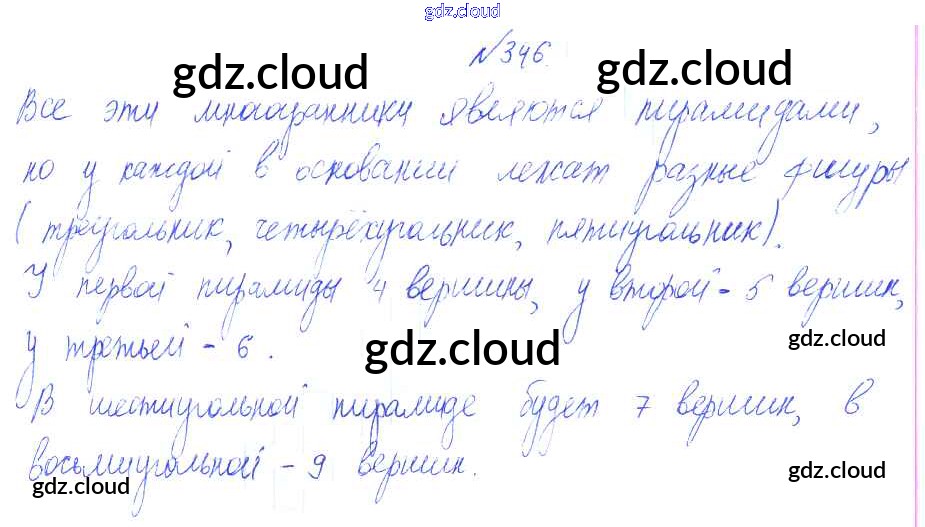 gdz.cloud
№346.
gdz.cloud gdz.cloud
Все эти многогранники являются пирамидами,
но у каждой в основании лежат разные фигуры
(треугольник, четырёхугольник, пятиугольник).
У первой пирамиды 4 вершины, у второй - 5 вершин,
gdz.cloud
у третьей - 6.
gdz.cloud
В шестиугольной пирамиде будет 7 вершин, в
восьмиугольной - 9 вершин.
gdz.cloud
gdz.cloud